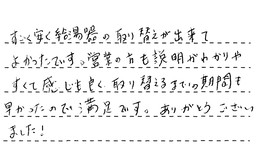 すごく安く給湯器の取り替えが出来て
よかったです。営業の方も説明がわかりや
すくて感じも良く取り替えるまでの期間も
早かったので満足です。ありがとうござい
ました！